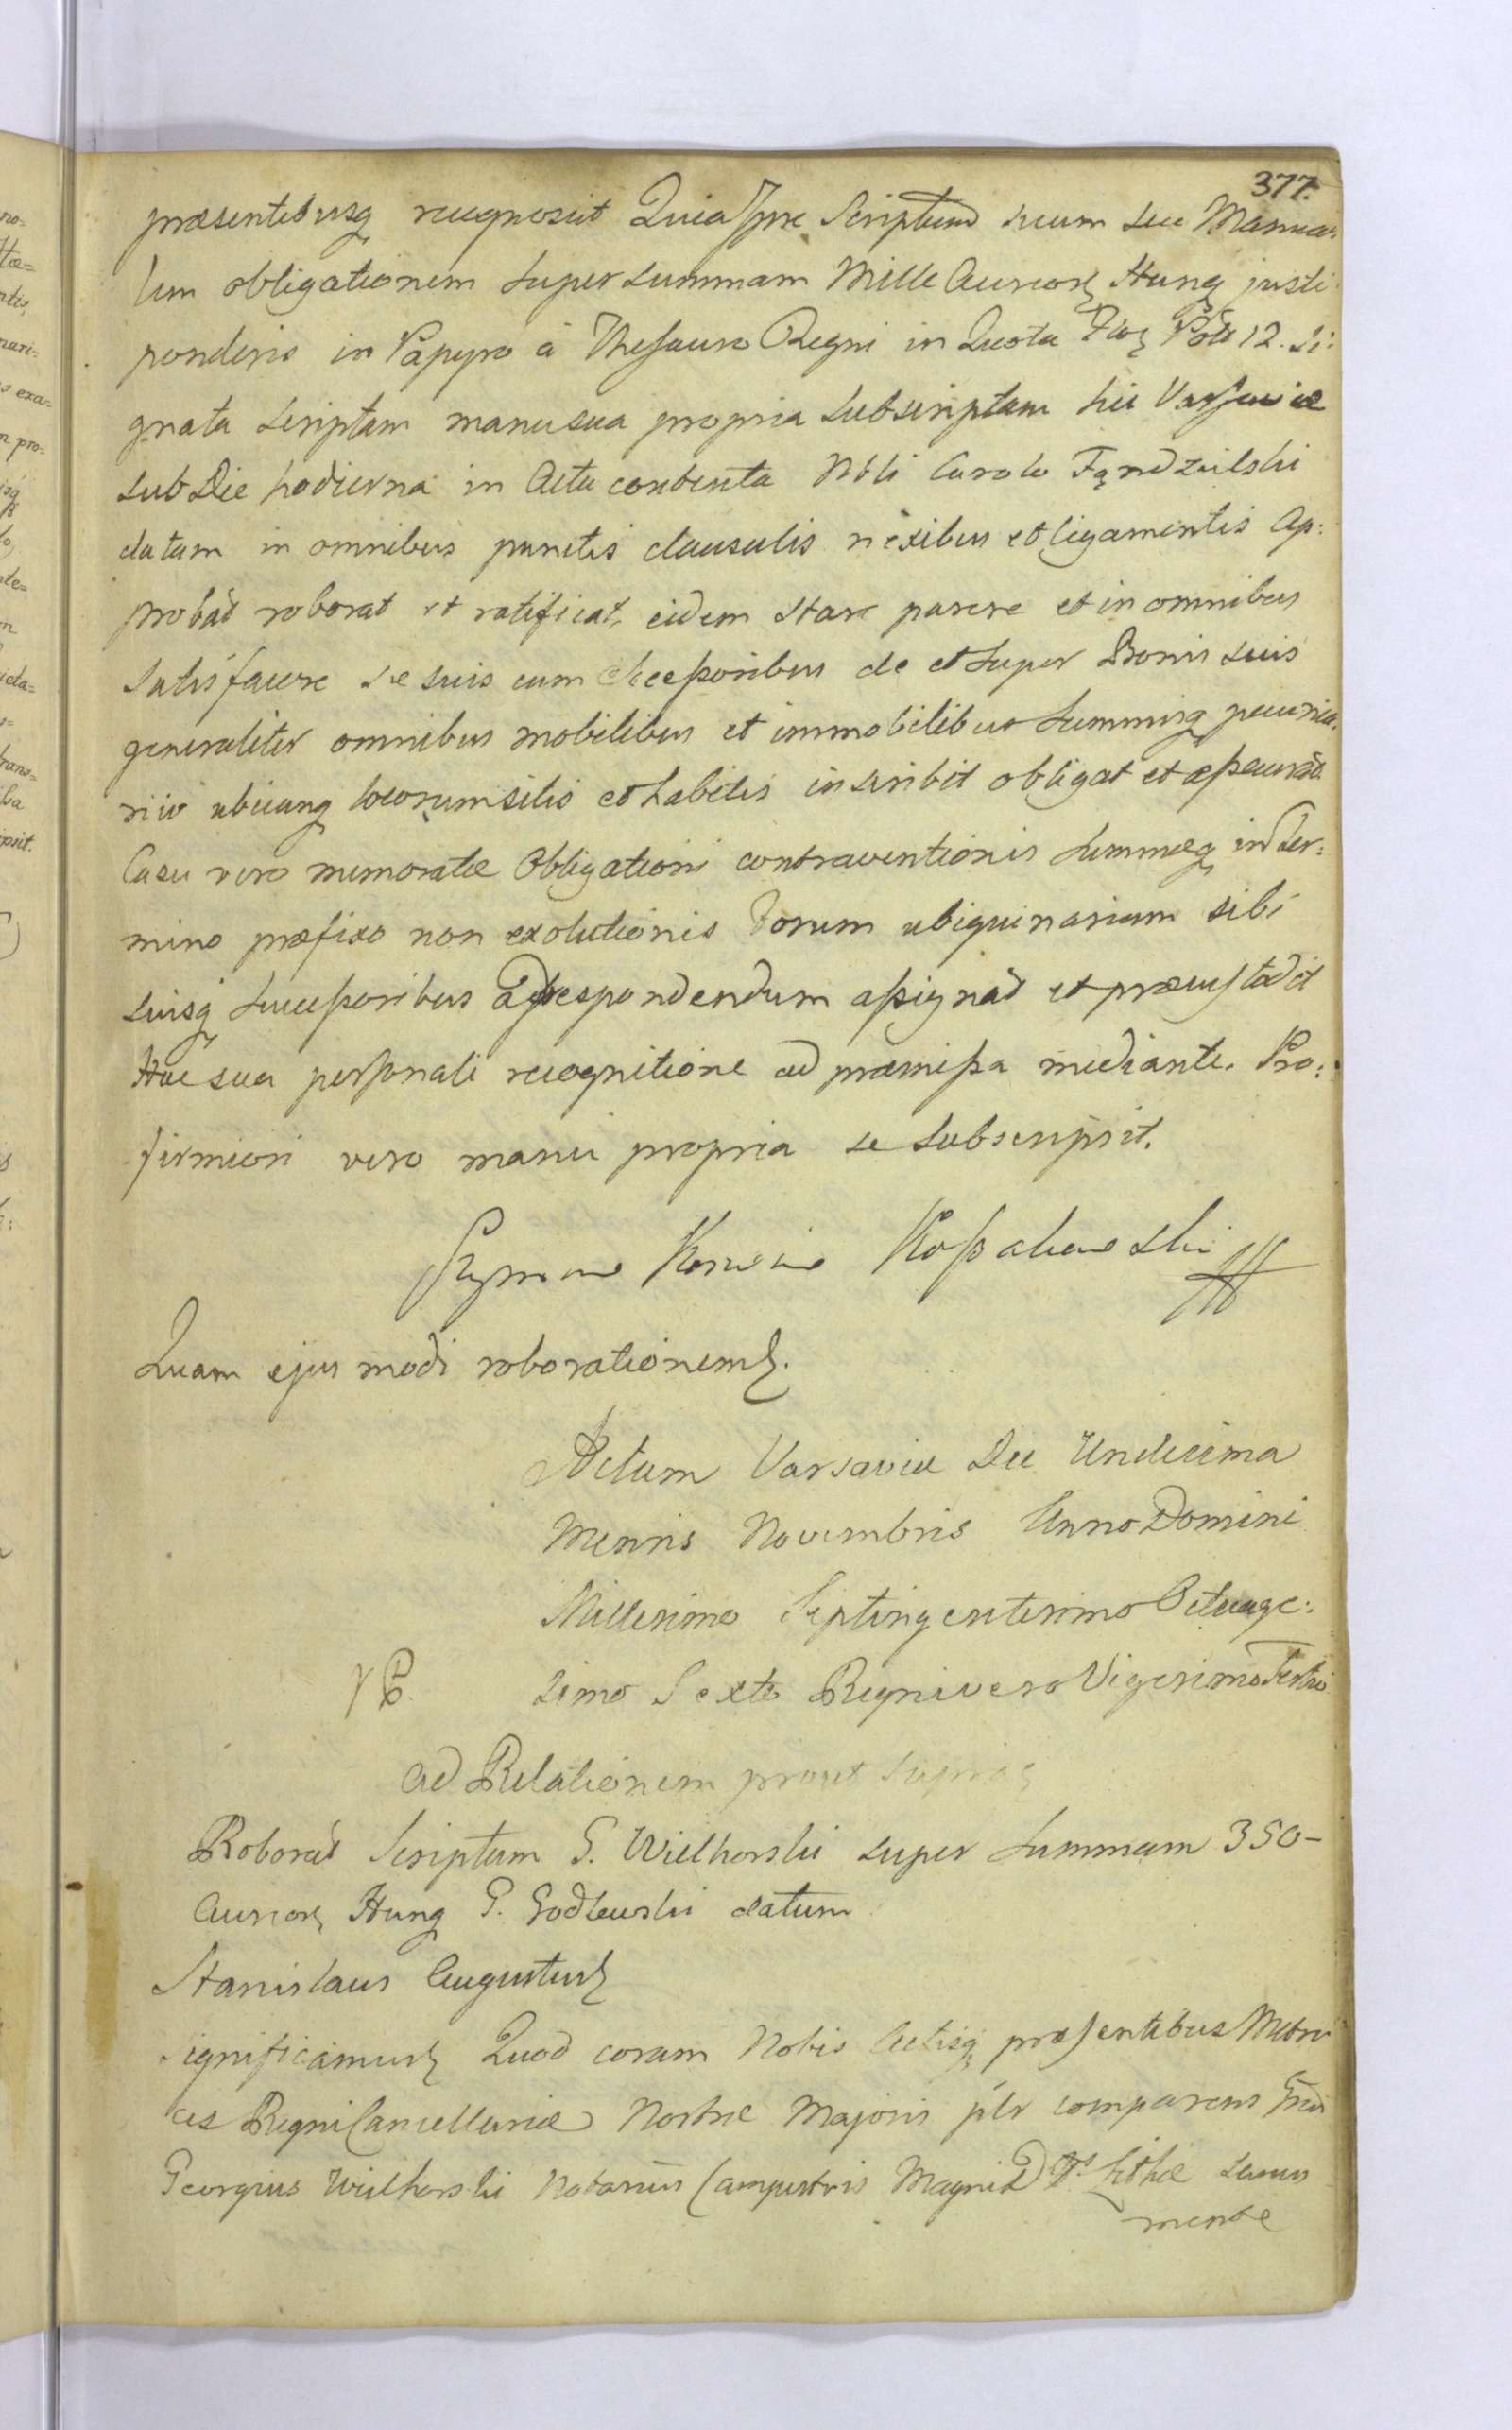 377.
præsentibusq recognovit Quia Ipse Scriptum suum seu Manua:
lem obligationem super summam Mille Aureorz Hung justi
ponderis in Papyro à Thesauro Regni in Quota Flor Pol 12. si:
gnata scriptam manu sua propria subscriptam hic Varsaviæ
sub Die hodierna in Acta contenta Nbli Carolo Fąndzilski
datam in omnibus punctis clausulis nexibus et ligamentis Ap:
probat roborat et ratificat, eidem stare parere et in omnibus
satisfacere se suis cum Successoribus de et super Bonis suis
generaliter omnibus mobilibus et immobilibus summisq pecunia:
riis ubicunq locorum sitis et habitis inscribit obligat et assecurat
Casu vero memoratæ Obligationi contraventionis summæq in ter:
mino præfixo non exolutionis Forum ubiquinarium sibi
suisq successoribus ad respondendum assignat et præcustodit
Hac sua personali recognitione ad præmissa mediante. Pro:
firmiori vero manu propria se subscripsit.
Szymon Korwin Kossakowski
Quam ejus modi roborationemz.
Actum Varsaviæ Die Undecima
Mensis Novembris Anno Domini
Millesimo Septingentesimo Octuage:
simo Sexto Regni vero Vigesimo Tertio
ad Relationem prout supra
Roborat Scriptum G. Wielhorski super summam 350-
Aureorz Hung G. Godlewski datum
Stanislaus Augustusz
Significamusz Quod coram Nobis Actisq præsentibus Metri
ces Regni Cancellariæ Nostræ Majoris plr comparens
Georgius Wielhorski Notarius Campestris Magni D. Lithæ sanus
mente